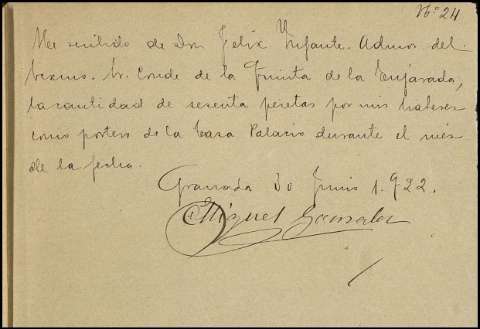 Nº 24
He recibido de Don Felix Infante. Admor del
Excmo. Sr. Conde de la Quinta de la Enjarada,
la cantidad de sesenta pesetas por mis haberes
como portero de la Casa Palacio durante el mes
de la fecha.
Granada 30 Junio 1.922.
Miguel Gonzalez